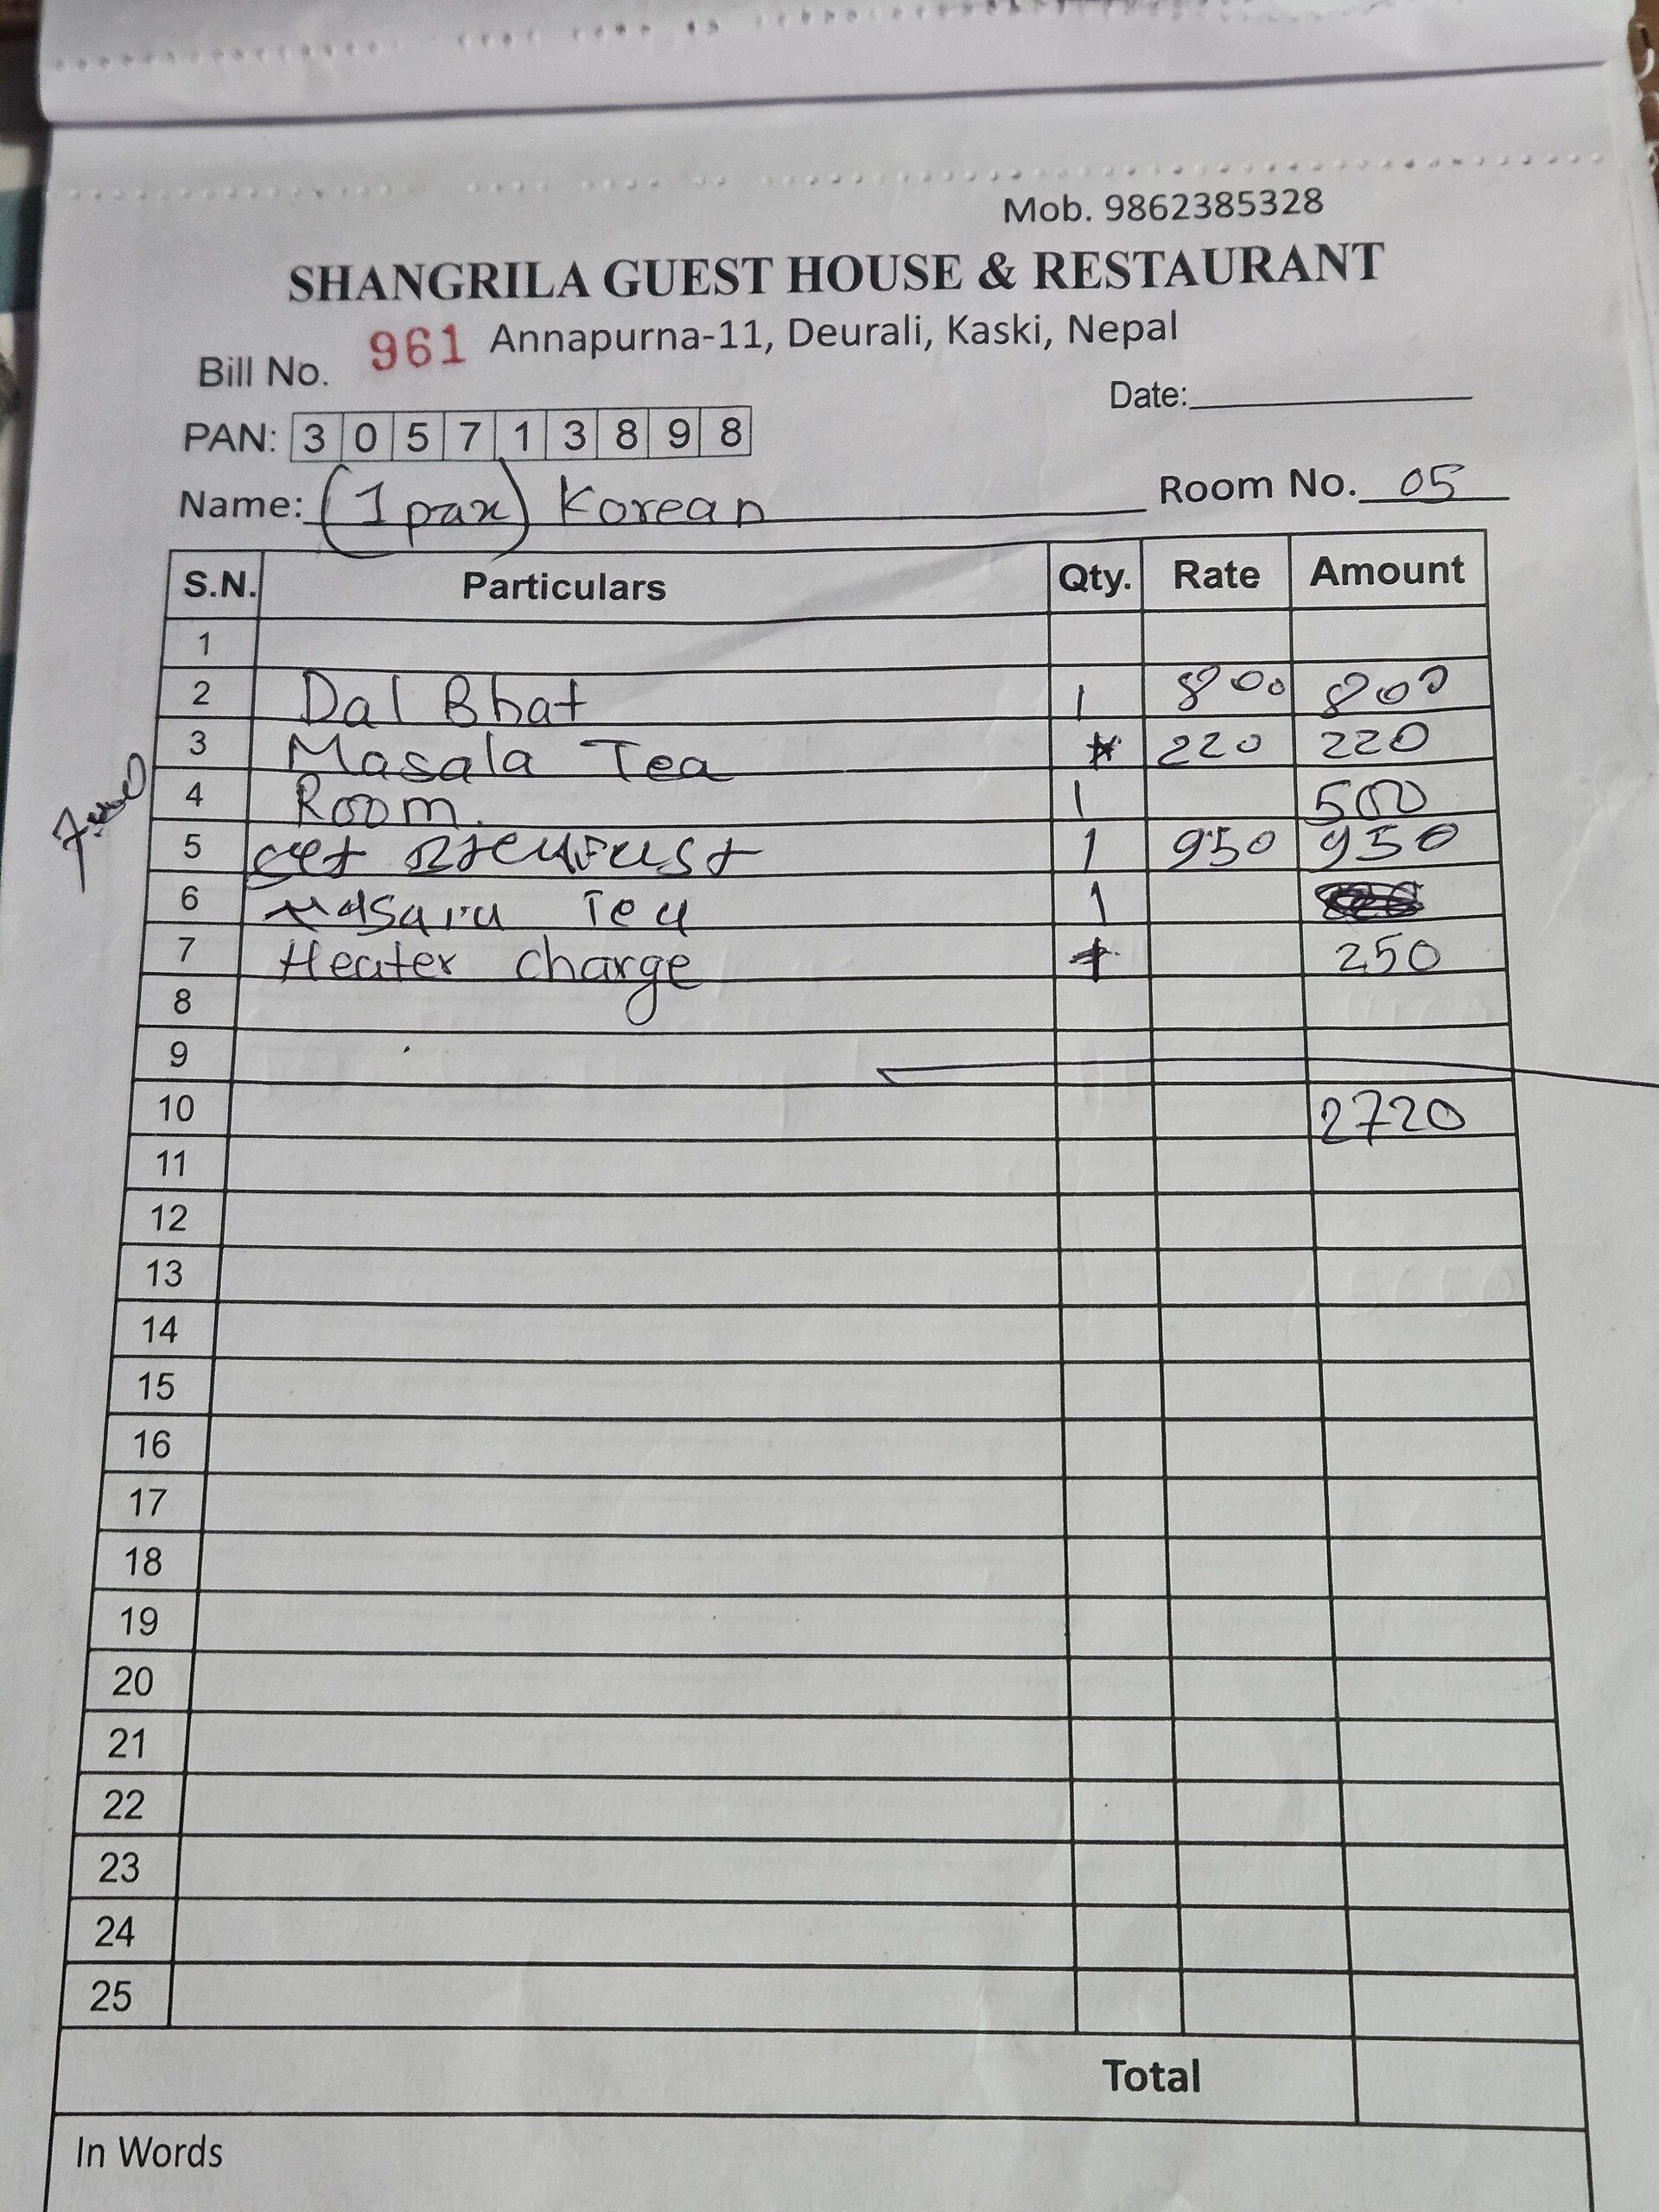 Mob. 9862385328
SHANGRILA GUEST HOUSE & RESTAURANT
Bill No. 961 Annapurna-11, Deurali, Kaski, Nepal
Date:
PAN: 305713898
Name: (1 pax) Korean Room No. 05
S.N. Particulars Qty. Rate Amount
1
2 Dal Bhat 1 800 800
3 Masala Tea 220 220
4 Room. 1 500
5 set Breakfast 1 950 950
6 Masala Tea 1
7 Heater charge 250
8
9
10 2720
11
12
13
14
15
16
17
18
19
20
21
22
23
24
25
Total
In Words